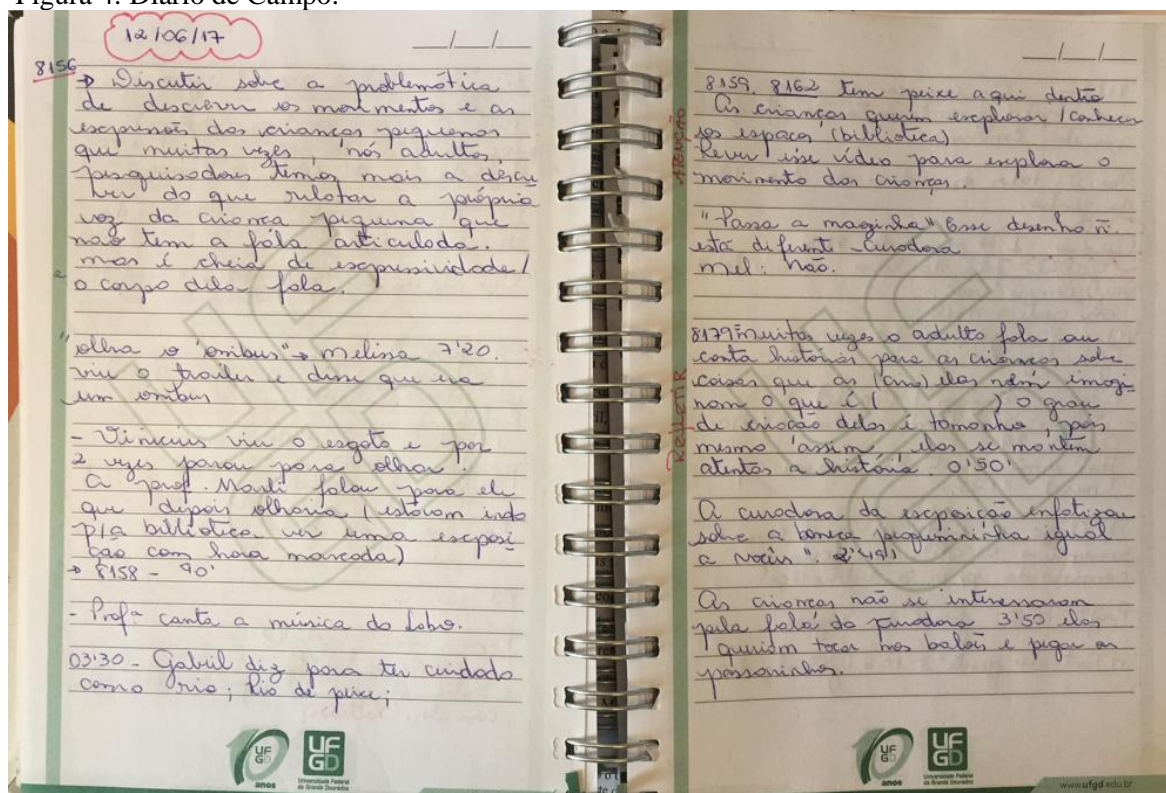 Figura 4: Diário de Campo.
12/06/17
__/__/__
8156
→ Discutir sobre a problemática
de descrever os movimentos e as
expressões das crianças pequenas
que muitas vezes, nós adultos,
pesquisadores temos mais a descre
ver do que relatar a própria
voz da criança pequena que
não tem a fala articulada.
mas é cheia de expressividade/
o corpo dela fala.
"olha o ônibus" → Melissa 7'20.
viu o trailer e disse que era
um ônibus
- Vinicius viu o esgoto e por
2 vezes parou para olhar.
A prof. Marli falou para ele
que depois olharia (estavam indo
p/a biblioteca ver uma exposi
ção com hora marcada)
→ 8158 - 90'
- Profª canta a música do lobo.
03'30 - Gabriel diz para ter cuidado
com o rio; rio de peixe;
UFGD
anos
UFGD
Universidade Federal
da Grande Dourados
__/__/__
8159, 8162 tem peixe aqui dentro
As crianças querem explorar/conhecer
os espaços (biblioteca)
ATENÇÃO
Rever esse vídeo para explorar o
movimento das crianças.
"Passa a mãozinha" Esse desenho ñ
está diferente Curadora
Mel: Não.
8179 muitas vezes o adulto fala ou
conta histórias para as crianças sobre
coisas que as (cri) elas nem imagi
nam o que é ( ) o grau
Refletir
de emoção delas é tamanha, pois
mesmo assim, elas se mantêm
atentas a história 0'50'
A curadora da exposição enfatizou
sobre a boneca pequenininha igual
a vocês". 2'49"
As crianças não se interessaram
pela fala da curadora 3'50 elas
queriam tocar nos balões e pegar os
passarinhos.
UFGD
anos
UFGD
Universidade Federal
da Grande Dourados
www.ufgd.edu.br